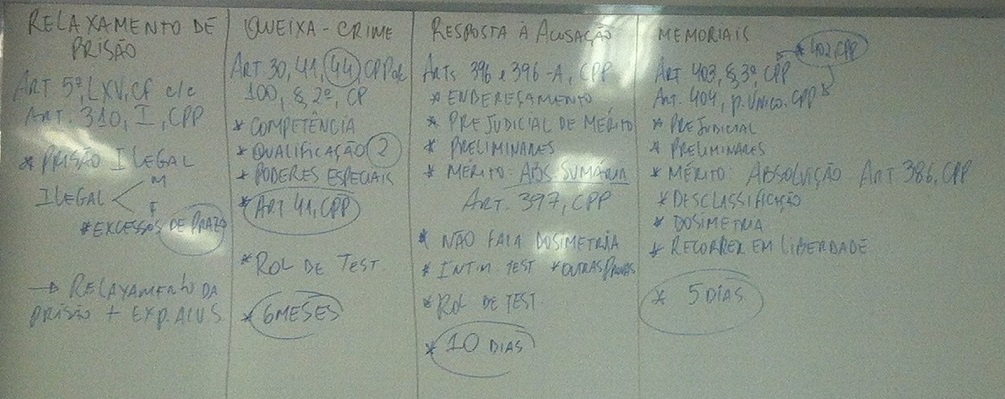 RELAXAMENTO DE
PRISÃO
ART 5º, LXV, CF c/c
ART. 310, I, CPP
* PRISÃO ILEGAL
ILEGAL < M
F
* EXCESSOS DE PRAZO
→ RELAXAMENTO DA
PRISÃO + EXP. ALVS
QUEIXA-CRIME
ART 30, 41, 44, CPP
100, § 2º, CP
* COMPETÊNCIA
* QUALIFICAÇÃO 2
* PODERES ESPECIAIS
* ART 41, CPP
* ROL DE TEST.
* 6 MESES
RESPOSTA À ACUSAÇÃO
ARTs 396 e 396-A, CPP
* ENDEREÇAMENTO
* PREJUDICIAL DE MÉRITO
* PRELIMINARES
* MÉRITO: ABS. SUMÁRIA
ART. 397, CPP
* NÃO FALA DOSIMETRIA
* INTIM. TEST * OUTRAS PROVAS
* ROL DE TEST.
* 10 DIAS
MEMORIAIS
* 402 CPP
ART 403, § 3º, CPP
ART. 404, P. ÚNICO. CPP
* PREJUDICIAL
* PRELIMINARES
* MÉRITO: ABSOLVIÇÃO ART 386, CPP
* DESCLASSIFICAÇÃO
* DOSIMETRIA
* RECORRER EM LIBERDADE
* 5 DIAS